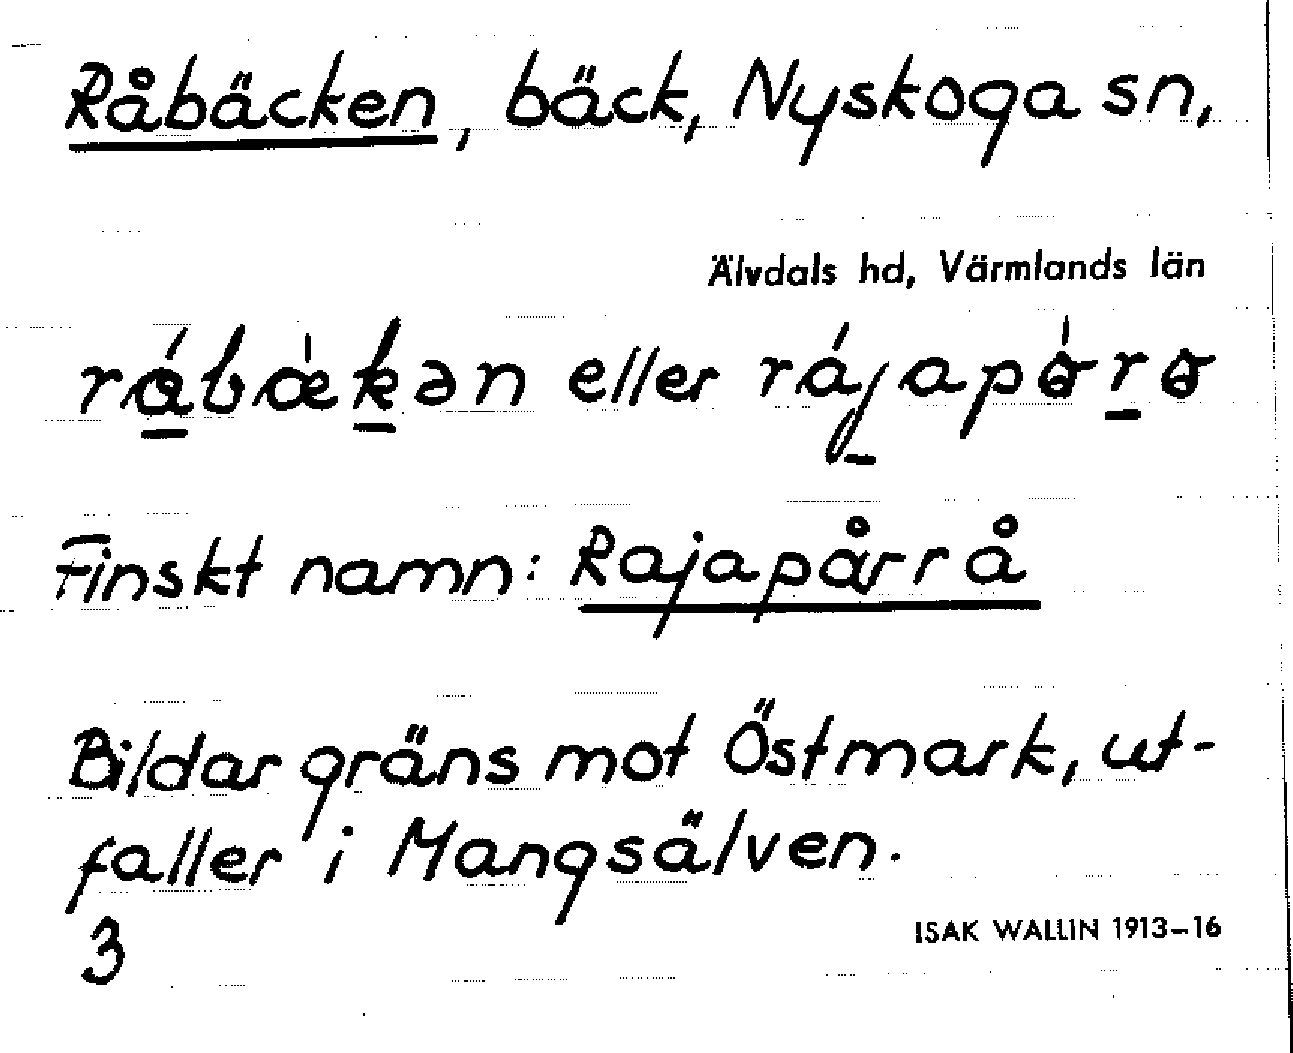 Råbäcken, bäck, Nyskoga sn,
Älvdals hd, Värmlands län
eller
Finskt namn: Rajapårrå
Bildar gräns mot Östmark, ut-
faller i Mangsälven.
3
ISAK WALLIN 1913-16